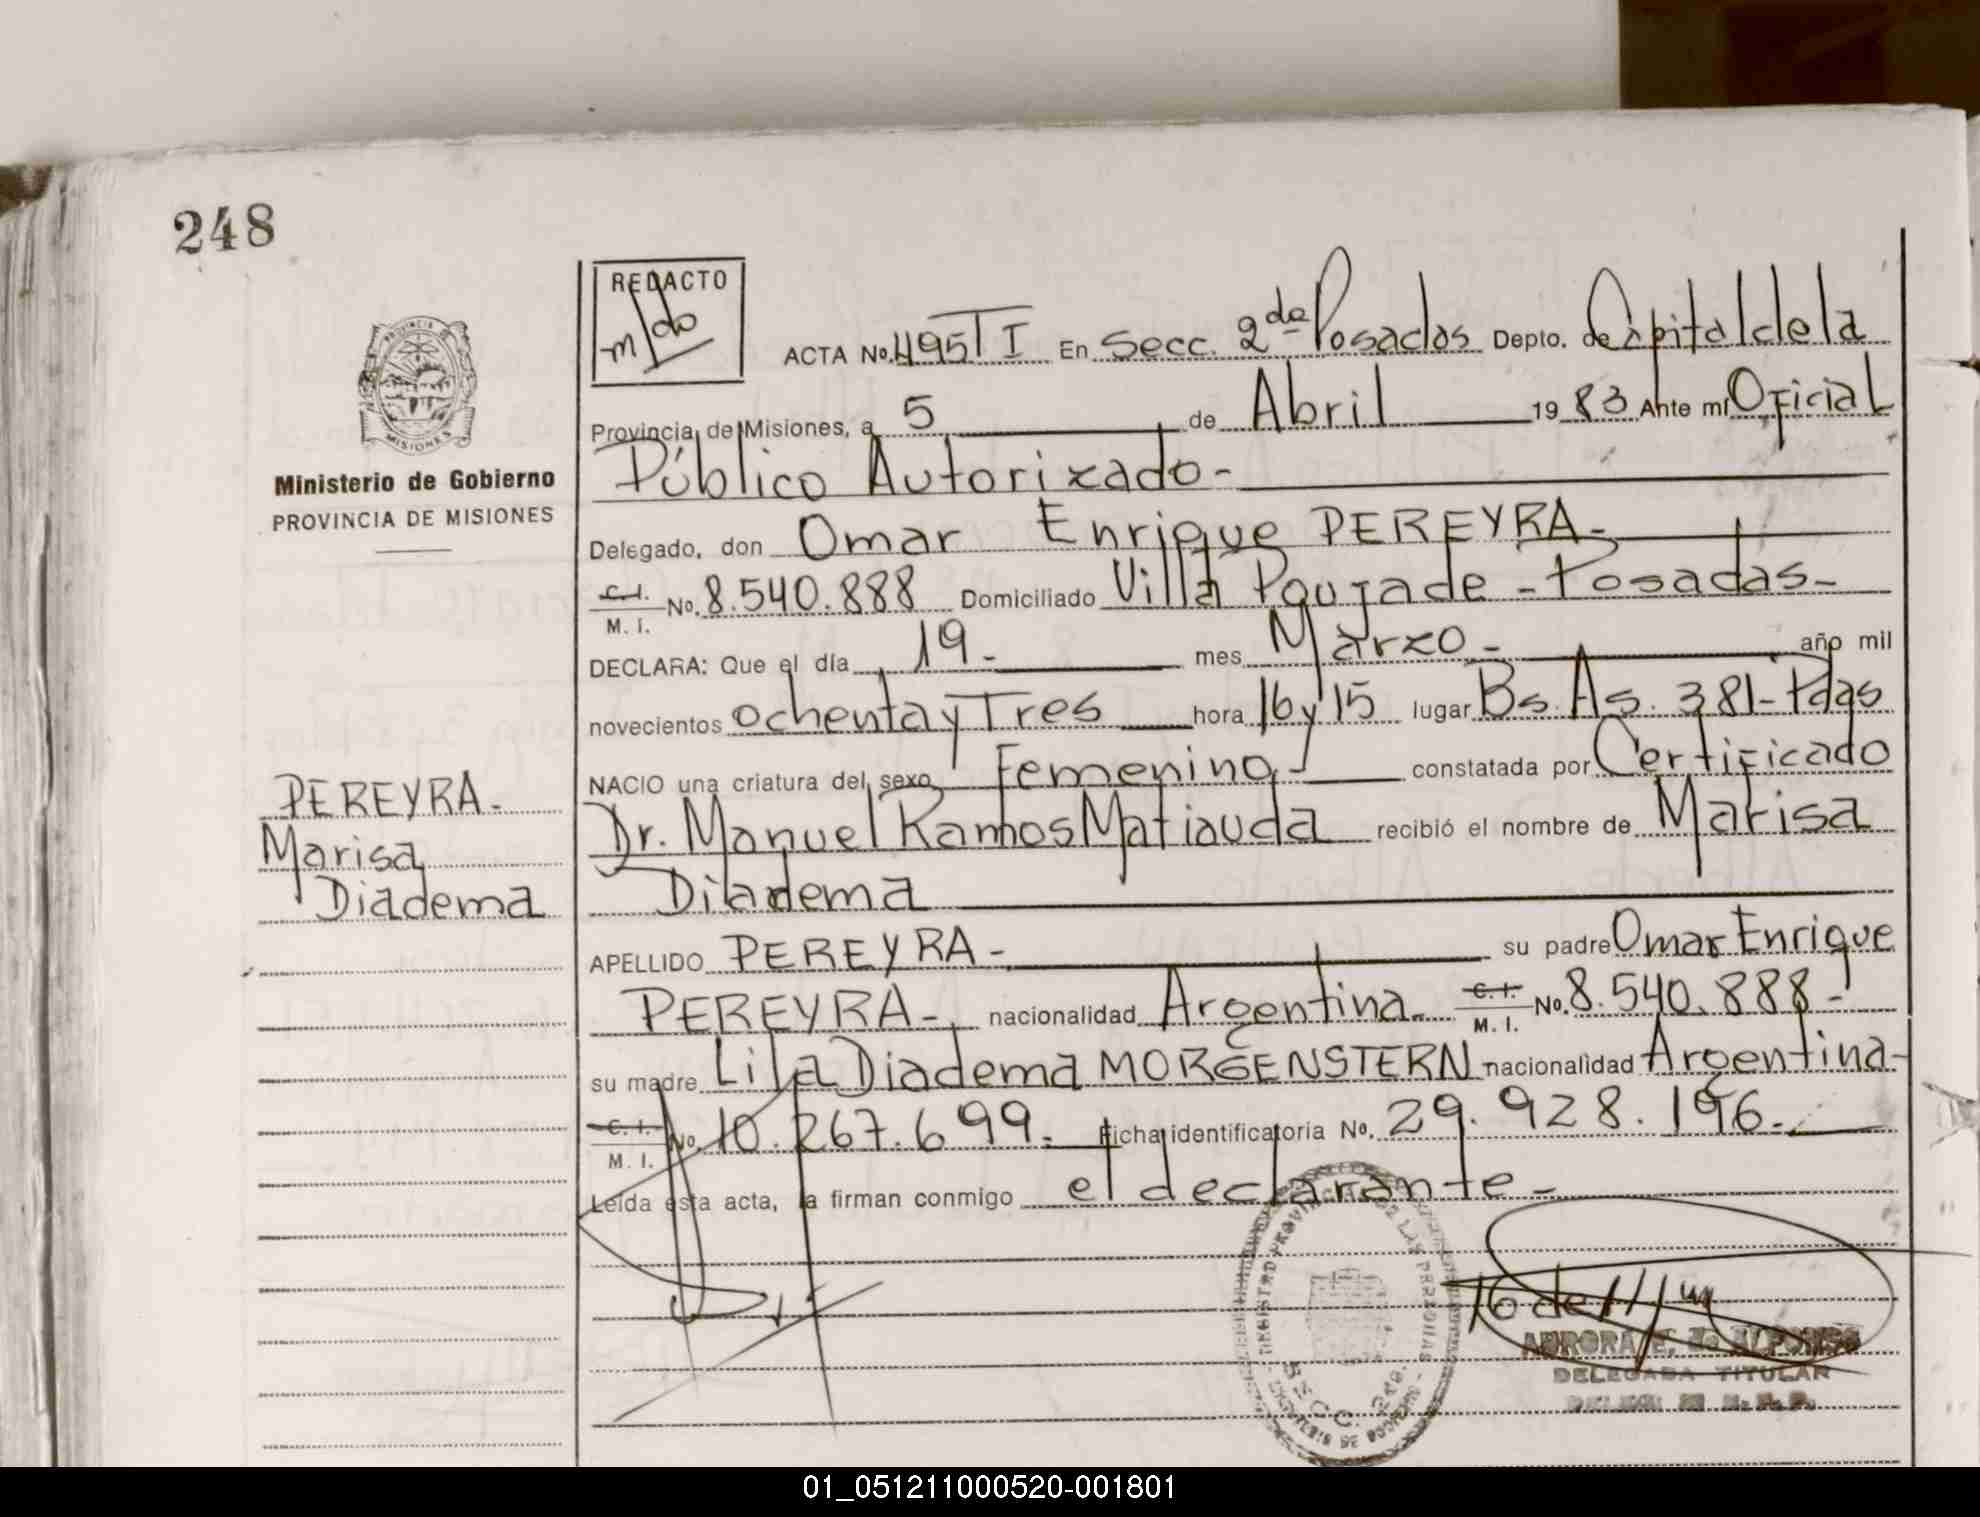 248
REDACTO
m/do
ACTA No. 495 T I En Secc. 2da Posadas Depto. de Capital de la
PROVINCIA DE
MISIONES
Provincia de Misiones, a 5 de Abril 1983 Ante mí Oficial
Público Autorizado-
Ministerio de Gobierno
PROVINCIA DE MISIONES
Delegado, don Omar Enrique PEREYRA-
C.I. M.I. No. 8.540.888 Domiciliado Villa Poujade - Posadas-
DECLARA: Que el día 19- mes Marzo- año mil
novecientos ochenta y Tres hora 16 y 15 lugar Bs. As. 381- Pdas
NACIO una criatura del sexo Femenino- constatada por Certificado
PEREYRA-
Marisa
Diadema
Dr. Manuel Ramos Matiauda recibió el nombre de Marisa
Diadema
APELLIDO PEREYRA- su padre Omar Enrique
PEREYRA-, nacionalidad Argentina- C.I. M.I. No. 8.540.888-
su madre Lila Diadema MORGENSTERN nacionalidad Argentina-
C.I. M.I. No. 10.267.699- Ficha identificatoria No. 29.928.196-
Leída esta acta, la firman conmigo el declarante-
SECC. 2da.
AURORA E. de ALFONSO
DELEGADA TITULAR
01_051211000520-001801